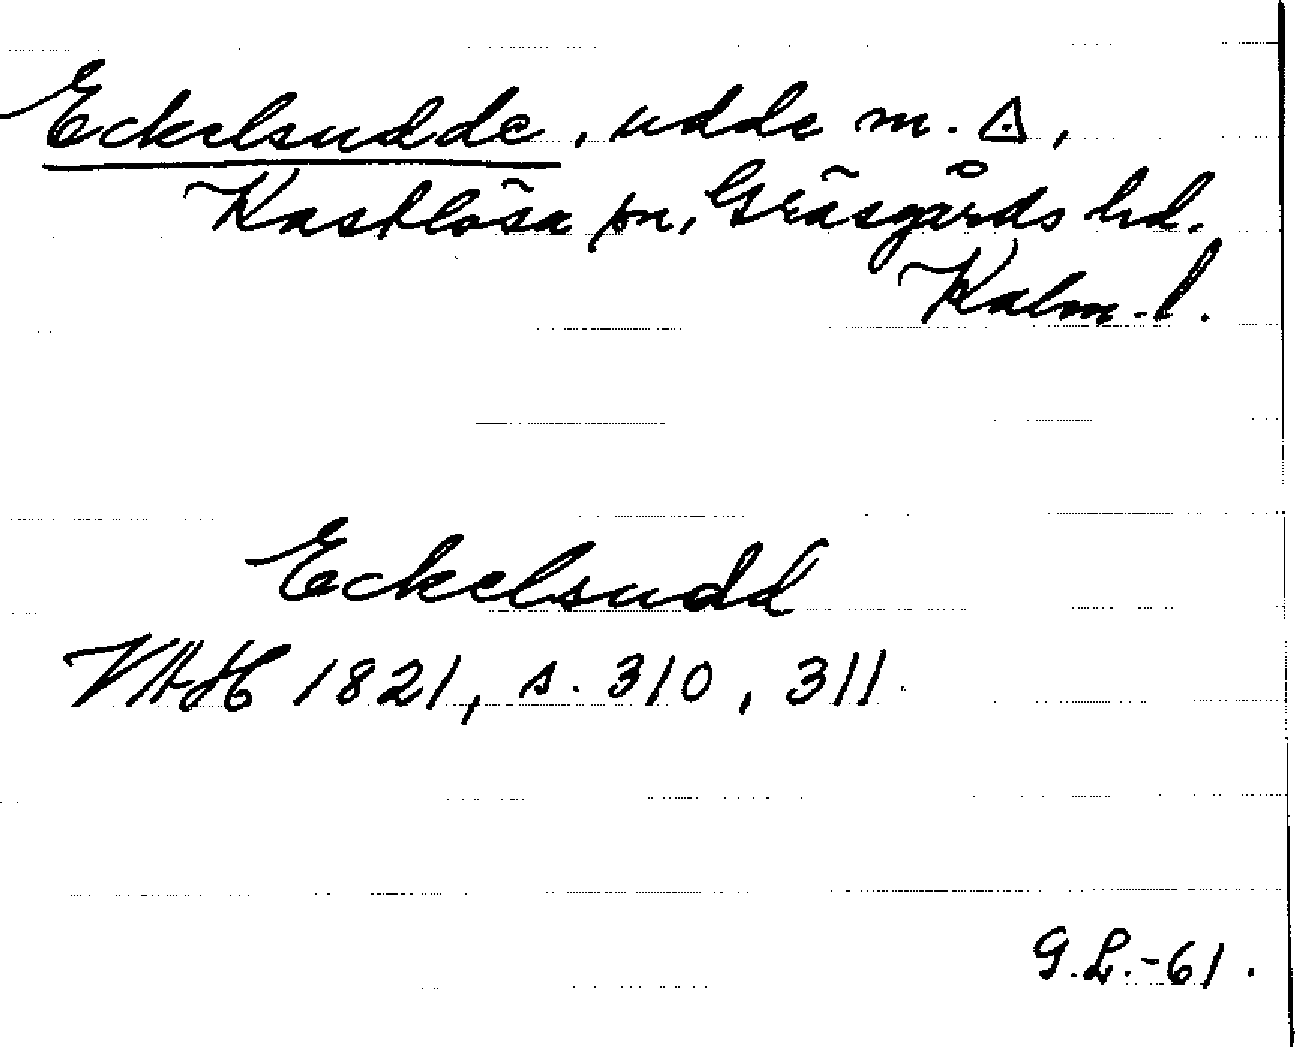 Eckelsudde, udde m. ◬,
Kastlösa sn, Gräsgårds hd.
Kalm. l.
Eckelsudd
VAH 1821, s. 310, 311.
G.L.-61.